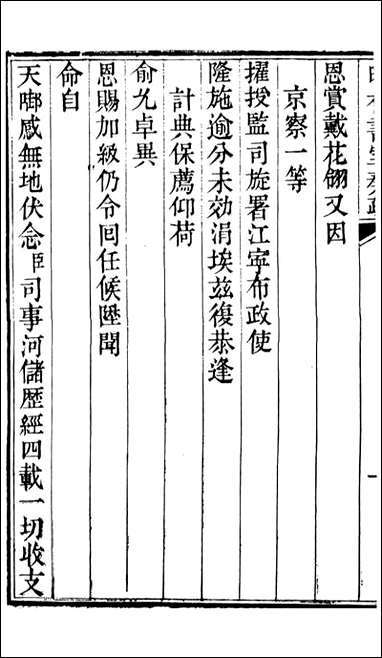 恩賞戴花翎又因
京察一等
擢授監司旋署江寧布政使
隆施逾分未効涓埃兹復恭逢
計典保薦仰荷
俞允卓異
恩賜加級仍令回任候陞聞
命自
天啣感無地伏念臣司事河儲歷經四載一切收支